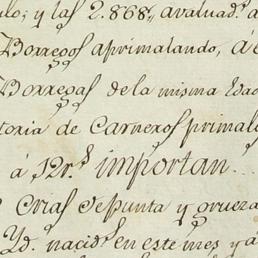 ulo; y las 2.868, avaluad.s a
Borregos aprimalando, á
Borregas de la misma
toria de Carneros primal
á 12r.s importan...
Crias de Punta y grueza
Yd. nacid.s en este mes y a